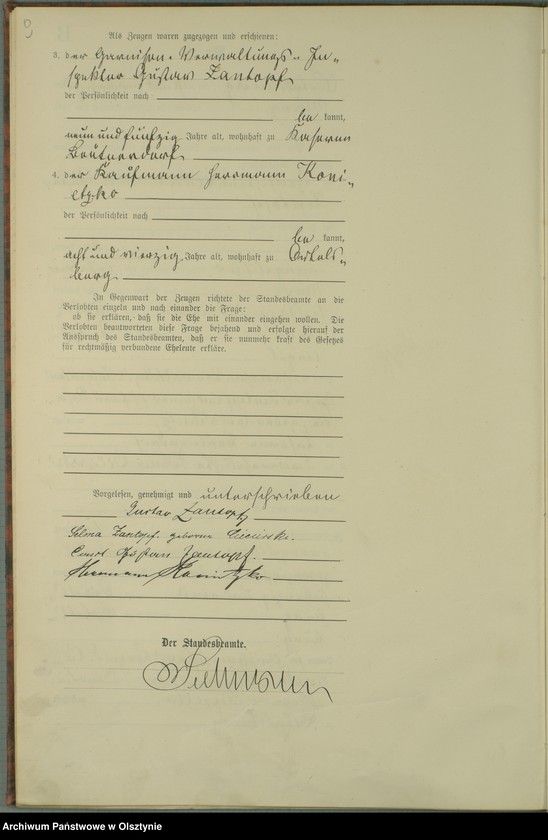 9
Als Zeugen waren zugezogen und erschienen:
3. der Garnison-Verwaltungs-In-
spektor Gustav Zantopf
der Persönlichkeit nach
be kannt,
neun und fünfzig Jahre alt, wohnhaft zu Kaserne
Beutnerdorf
4. der Kaufmann Herrmann Koni-
etzko
der Persönlichkeit nach
be kannt,
acht und vierzig Jahre alt, wohnhaft zu Ortels-
burg
In Gegenwart der Zeugen richtete der Standesbeamte an die
Verlobten einzeln und nach einander die Frage:
ob sie erklären, daß sie die Ehe mit einander eingehen wollen. Die
Verlobten beantworteten diese Frage bejahend und erfolgte hierauf der
Ausspruch des Standesbeamten, daß er sie nunmehr kraft des Gesetzes
für rechtmäßig verbundene Eheleute erkläre.
Vorgelesen, genehmigt und unterschrieben
Gustav Zantopf
Selma Zantopf geborene
Gustav Zantopf.
Hermann Konietzko
Der Standesbeamte.
Archiwum Państwowe w Olsztynie